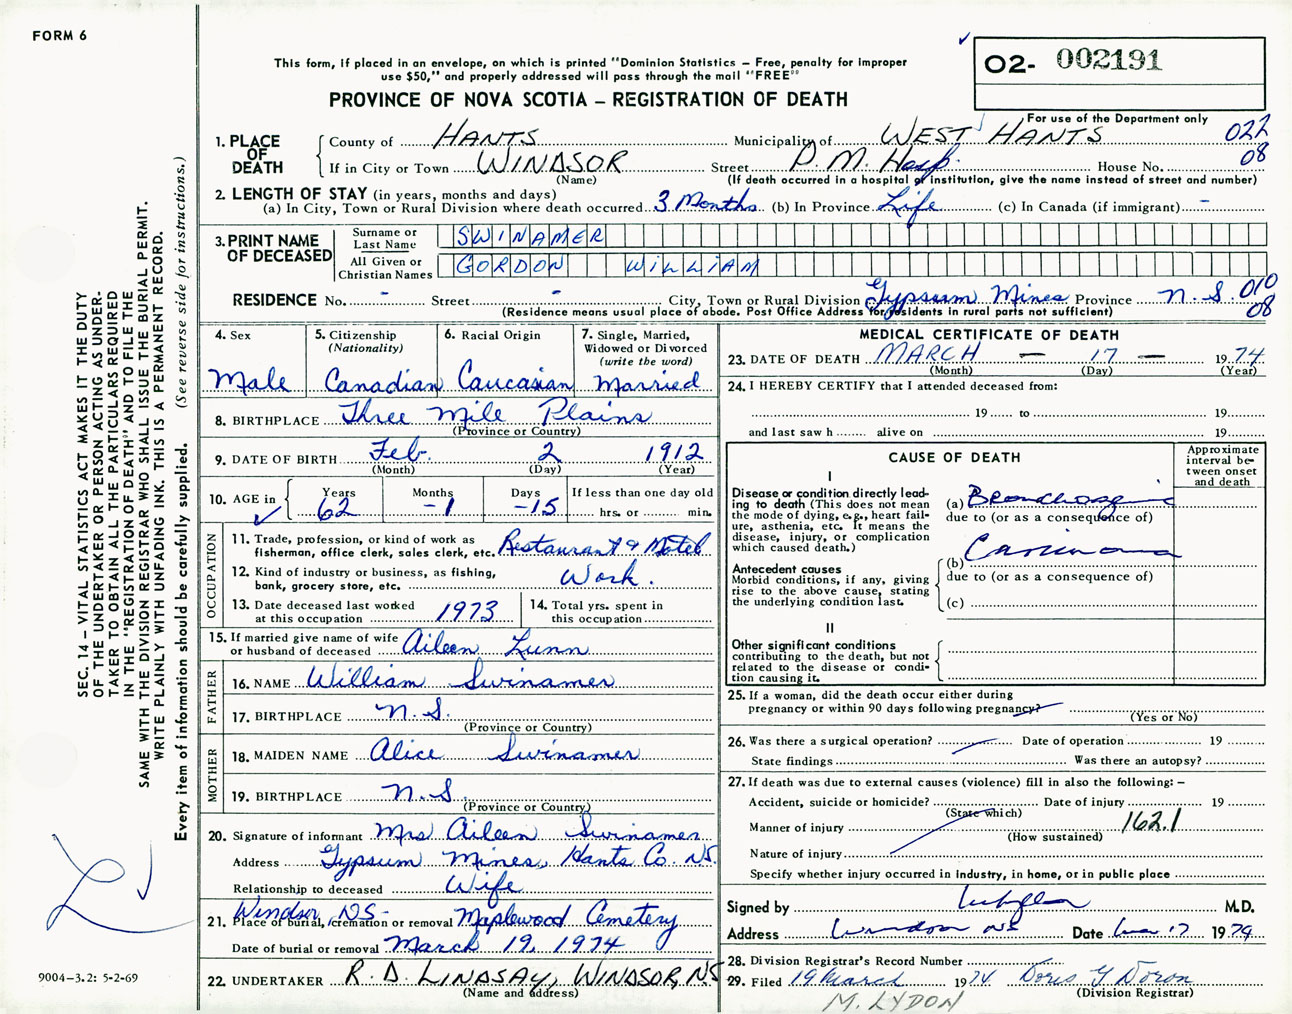 FORM 6
This form, if placed in an envelope, on which is printed "Dominion Statistics – Free, penalty for improper
use $50," and properly addressed will pass through the mail "FREE"
PROVINCE OF NOVA SCOTIA – REGISTRATION OF DEATH
02- 002191
For use of the Department only
1. PLACE OF DEATH
County of HANTS Municipality of WEST HANTS 022
If in City or Town WINDSOR Street P. M. Hosp. House No. 08
(Name) (If death occurred in a hospital or institution, give the name instead of street and number)
2. LENGTH OF STAY (in years, months and days)
(a) In City, Town or Rural Division where death occurred 3 Months (b) In Province Life (c) In Canada (if immigrant) -
3. PRINT NAME OF DECEASED
Surname or Last Name SWINAMER
All Given or Christian Names GORDON WILLIAM
RESIDENCE No. - Street - City, Town or Rural Division Gypsum Mines Province N.S. 010
08
(Residence means usual place of abode. Post Office Address for residents in rural parts not sufficient)
4. Sex
Male
5. Citizenship (Nationality)
Canadian
6. Racial Origin
Caucasian
7. Single, Married, Widowed or Divorced (write the word)
Married
8. BIRTHPLACE Three Mile Plains
(Province or Country)
9. DATE OF BIRTH Feb. 2 1912
(Month) (Day) (Year)
10. AGE in Years Months Days If less than one day old
62 -1 -15 hrs. or min.
OCCUPATION
11. Trade, profession, or kind of work as
fisherman, office clerk, sales clerk, etc. Restaurant & Motel
12. Kind of industry or business, as fishing,
bank, grocery store, etc. Work.
13. Date deceased last worked
at this occupation 1973
14. Total yrs. spent in
this occupation
15. If married give name of wife
or husband of deceased Aileen Lunn
FATHER
16. NAME William Swinamer
17. BIRTHPLACE N.S.
(Province or Country)
MOTHER
18. MAIDEN NAME Alice Swinamer
19. BIRTHPLACE N.S.
(Province or Country)
20. Signature of informant Mrs Aileen Swinamer
Address Gypsum Mines, Hants Co. NS.
Relationship to deceased Wife
Windsor, NS-
21. Place of burial, cremation or removal Maplewood Cemetery
Date of burial or removal March 19, 1974
22. UNDERTAKER R. D. LINDSAY, WINDSOR, NS
(Name and address)
MEDICAL CERTIFICATE OF DEATH
23. DATE OF DEATH MARCH – 17 – 1974
(Month) (Day) (Year)
24. I HEREBY CERTIFY that I attended deceased from:
19 to 19
and last saw h alive on 19
CAUSE OF DEATH
Approximate interval between onset and death
I
Disease or condition directly lead-
ing to death (This does not
mean the mode of dying, e.g., heart fail-
ure, asthenia, etc. It means the
disease, injury, or complication
which caused death.)
(a) Bronchogenic
due to (or as a consequence of)
Antecedent causes
Morbid conditions, if any, giving
rise to the above cause, stating
the underlying condition last.
Carcinoma
(b)
due to (or as a consequence of)
(c)
II
Other significant conditions
contributing to the death, but not
related to the disease or condi-
tion causing it.
25. If a woman, did the death occur either during
pregnancy or within 90 days following pregnancy?
(Yes or No)
26. Was there a surgical operation? Date of operation 19
State findings Was there an autopsy?
27. If death was due to external causes (violence) fill in also the following: –
Accident, suicide or homicide? Date of injury 19
(State which)
Manner of injury 162.1
(How sustained)
Nature of injury
Specify whether injury occurred in industry, in home, or in public place
Signed by M.D.
Address Windsor NS Date Mar 17 1974
28. Division Registrar's Record Number
29. Filed 19 March 1974 Doris Y Doron
(Division Registrar)
M. LYDON
SEC. 14 – VITAL STATISTICS ACT MAKES IT THE DUTY
OF THE UNDERTAKER OR PERSON ACTING AS UNDER-
TAKER TO OBTAIN ALL THE PARTICULARS REQUIRED
IN THE "REGISTRATION OF DEATH" AND TO FILE THE
SAME WITH THE DIVISION REGISTRAR WHO SHALL ISSUE THE BURIAL PERMIT.
WRITE PLAINLY WITH UNFADING INK. THIS IS A PERMANENT RECORD.
Every item of information should be carefully supplied. (See reverse side for instructions.)
9004-3.2: 5-2-69